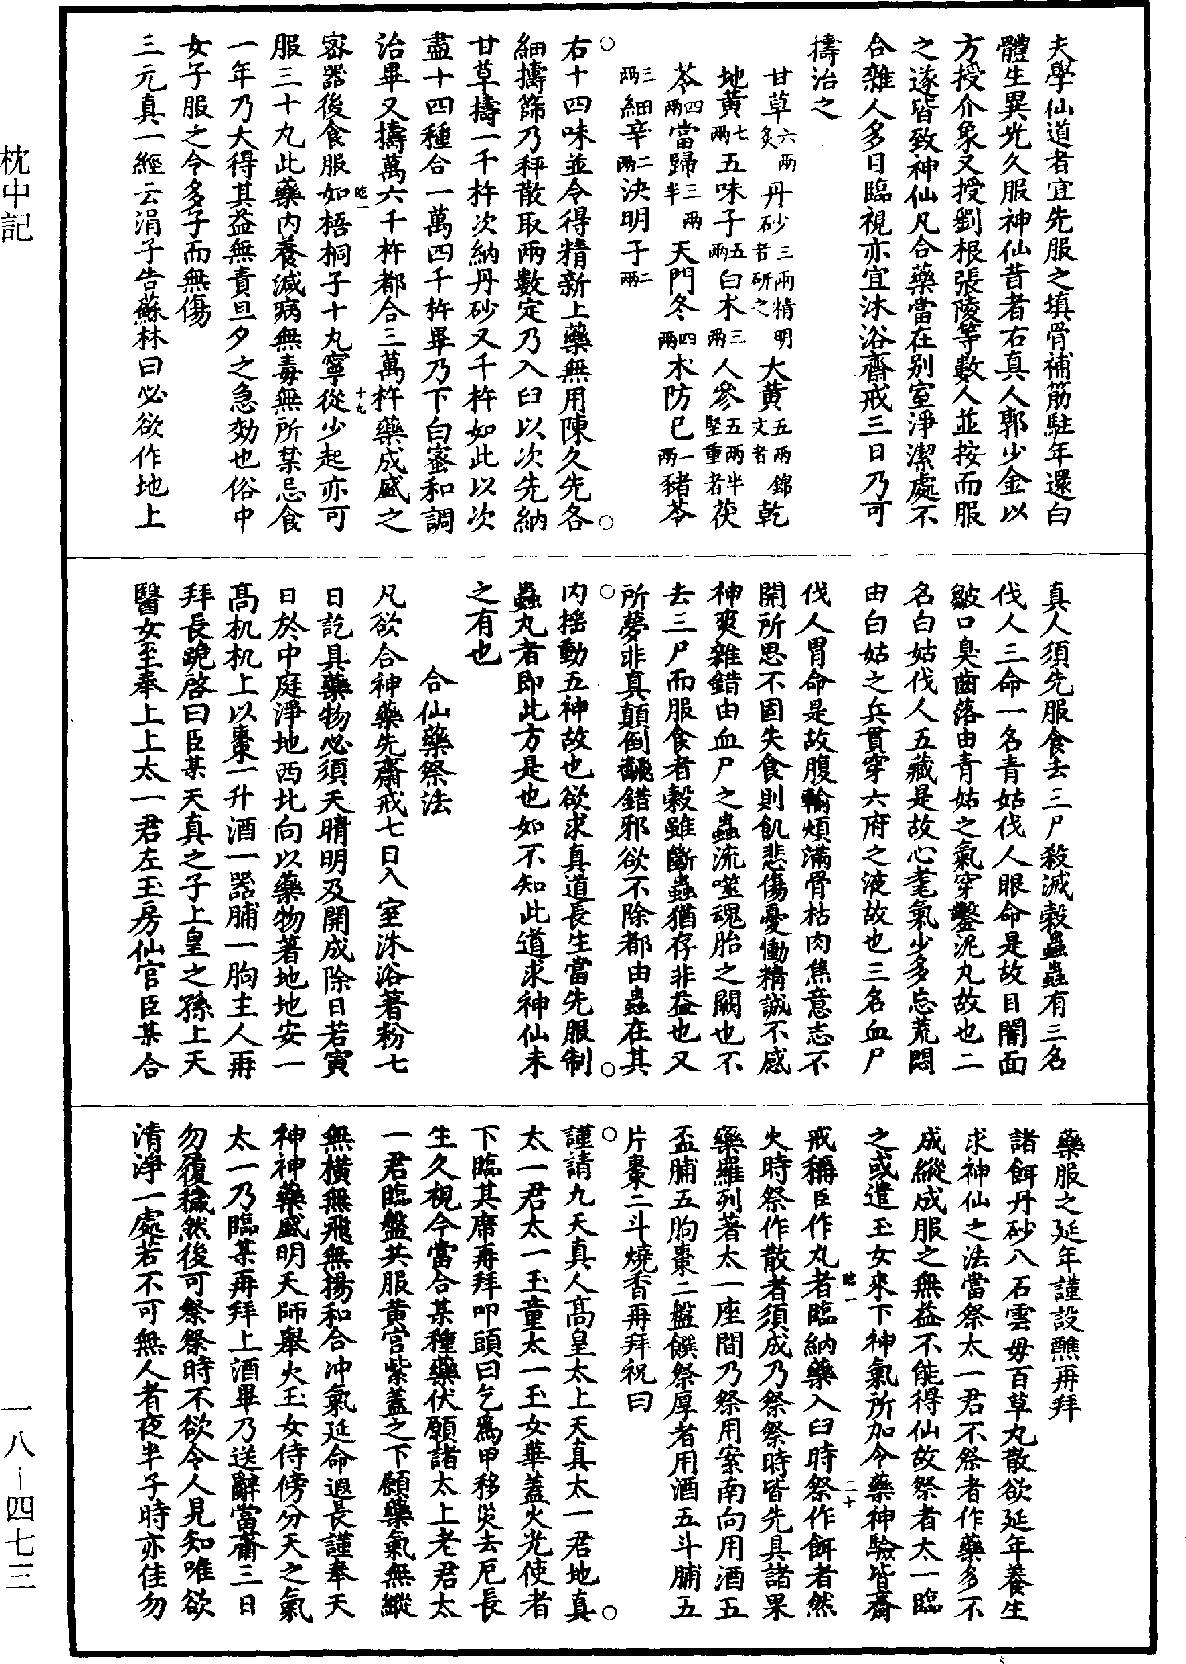 夫學仙道者宜先服之填骨補筋駐年還白
體生異光久服神仙昔者右真人郭少金以
方授介象又授劉根張陵等數人並按而服
之遂皆致神仙凡合藥當在別室淨潔處不
合雜人多目臨視亦宜沐浴齋戒三日乃可
擣治之
甘草六兩炙丹砂三兩精明者研之大黃五兩錦文者乾
地黃七兩五味子五兩白朮三兩人參五兩半堅重者茯
苓四兩當歸三兩半天門冬四兩木防已一兩豬苓
三兩細辛二兩決明子二兩
右十四味並令得精新上藥無用陳久先各
細擣篩乃秤散取兩數定乃入臼以次先納
甘草擣一千杵次納丹砂又千杵如此以次
盡十四種合一萬四千杵畢乃下白蜜和調
治畢又擣萬六千杵都合三萬杵藥成盛之
密器後食服如梧桐子十丸寧從少起亦可
服三十丸此藥內養減病無毒無所某忌食
一年乃大得其益無責旦夕之急効也俗中
女子服之令多子而無傷
三元真一經云涓子告蘇林曰必欲作地上
真人須先服食去三尸殺滅穀蟲蟲有三名
伐人三命一名青姑伐人眼命是故目闇面
皺口臭齒落由青姑之氣穿鑿泥丸故也二
名白姑伐人五藏是故心耄氣少多忘荒悶
由白姑之兵貫穿六府之液故也三名血尸
伐人胃命是故腹輪煩滿骨枯肉焦意志不
開所思不固失食則飢悲傷憂慟精誠不感
神爽雜錯由血尸之蟲流噬魂胎之關也不
去三尸而服食者穀雖斷蟲猶存非益也又
所夢非真顛倒齷錯邪欲不除都由蟲在其
內搖動五神故也欲求真道長生當先服制
蟲丸者即此方是也如不知此道求神仙未
之有也
合仙藥祭法
凡欲合神藥先齋戒七日入室沐浴著粉七
日訖具藥物必須天晴明及開成除日若寅
日於中庭淨地西北向以藥物著地地安一
高机机上以棗一升酒一器脯一朐主人再
拜長跪啓曰臣某天真之子上皇之孫上天
醫女至奉上上太一君左玉房仙官臣某合
藥服之延年謹設醮再拜
諸餌丹砂八石雲母百草丸散欲延年養生
求神仙之法當祭太一君不祭者作藥多不
成縱成服之無益不能得仙故祭者太一臨
之或遣玉女來下神氣所加令藥神驗皆齋
戒稱臣作丸者臨納藥入臼時祭作餌者然
火時祭作散者須成乃祭祭時皆先具諸果
藥羅列著太一座間乃祭用案南向用酒五
盃脯五朐棗二盤饌祭厚者用酒五斗脯五
片棗二斗燒香再拜祝曰
謹請九天真人高皇太上天真太一君地真
太一君太一玉童太一玉女華蓋火光使者
下臨其席再拜叩頭曰乞為甲移災去厄長
生久視今當合某種藥伏願諸太上老君太
一君臨盤共服黃宮紫蓋之下願藥氣無縱
無橫無飛無揚和合冲氣延命遐長謹奉天
神神藥盛明天師舉火玉女侍傍分天之氣
太一乃臨某再拜上酒畢乃送辭當齋三日
勿履穢然後可祭祭時不欲令人見知唯欲
清淨一處若不可無人者夜半子時亦佳勿
枕中記
一八—四七三